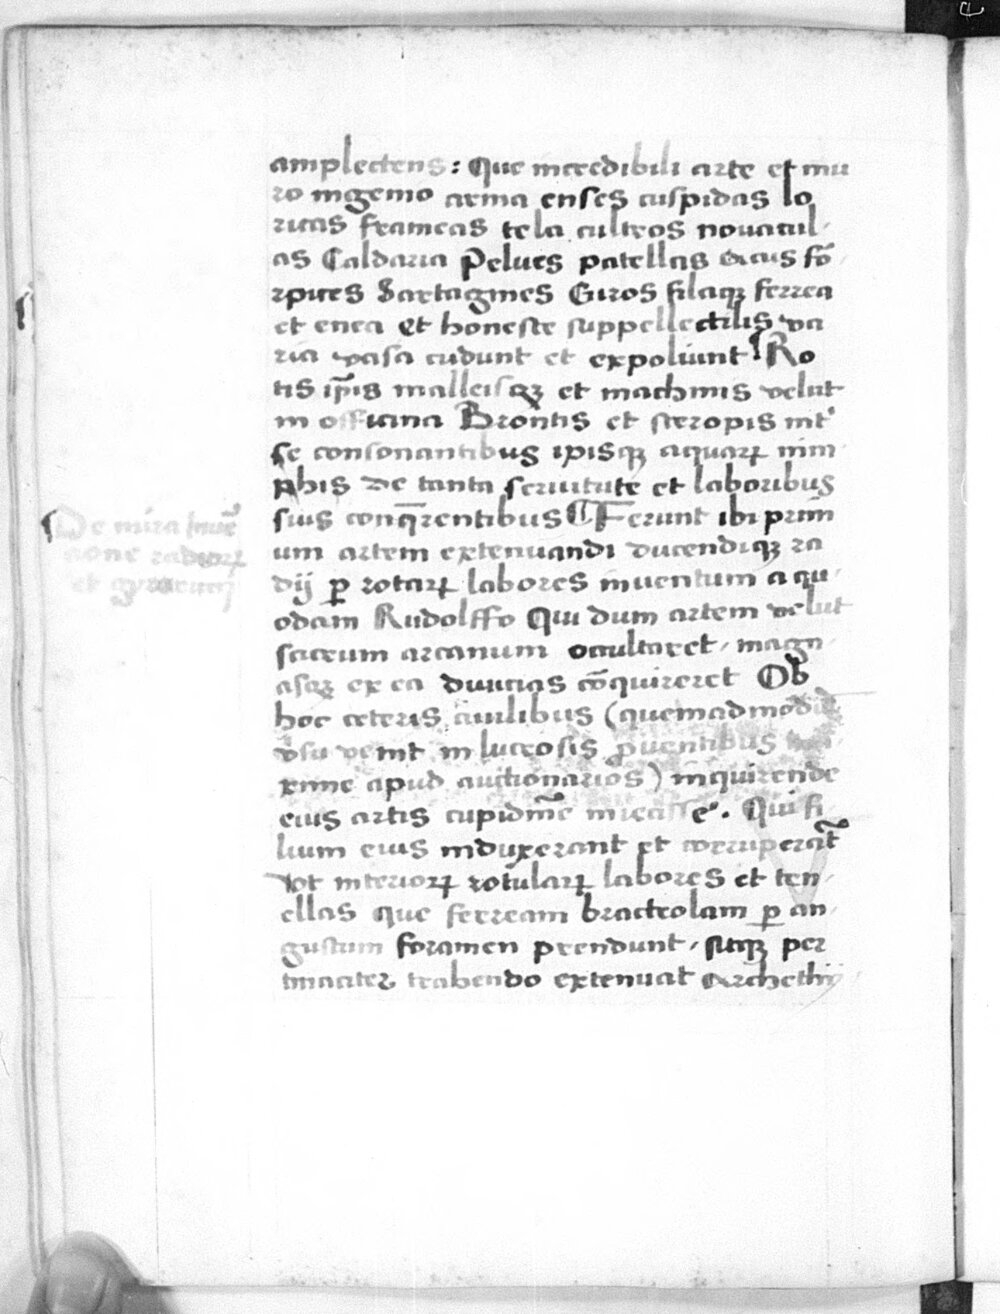 amplectens: Que incredibili arte et mu
ro ingenio arma enses cuspidas lo
ricas frameas tela cultros nouacul
as Caldaria Pelues patellas Acus fō
rpices Sartagines Giros filaqȝ ferrea
et enea Et honeste suppellectilis va
ria vasa cudunt et expoliunt Ro
tis ip̄is malleisqȝ et machinis velut
in officina Brontis et steropis int'
se consonantibus ipisqȝ aquaꝝ nim
phis de tanta seruitute et laboribus
suis conq̄rentibus Ferunt ibi prim
um artem extenuandi ducendiqȝ ra
dij ꝑ rotaꝝ labores inuentum a qu
odam Rudolffo Qui dum artem velut
sacrum arcanum occultaret, magn
asqȝ ex ea diuicias cōquireret Ob
hoc ceteris ciuilibus (quemadmodū
vsu venit in lucrosis ꝓuentibus
renne apud auctionarios) inquirende
eius artis cupidinē iniecisse. Qui fi
lium eius induxerant et corruperāt
vot interioꝝ rotulaꝝ labores et ten
ellas que ferream bracteolam ꝑ an
gustum foramen prendunt, sicqȝ per
tinaciter trahendo extenuat Archethij
De mira inuē
cione radioꝝ
et gyrorum